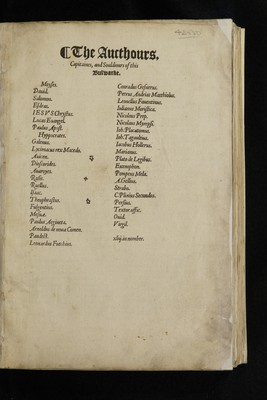 ¶The Aucthours,
Capitaines, and Souldiours of this
Bulwarke.
Moyses.
Dauid.
Salomon.
Esdras.
IESVS Christus.
Lucas Euangel.
Paulus Apost.
Hyppocrates.
Galenus.
Lysimacus rex Macedo.
Auicen.
Dioscorides.
Auerroys.
Rasis.
Ruellius.
Theophrastus.
Fulgentius.
Mesuæ.
Paulus Aegineta.
Arnoldus de noua Canon.
Pandect.
Leonardus Fuchsius.
Conradus Gesnerus.
Petrus Andreas Matthiolus.
Leonellus Fauentinus.
Iulianus
Nicolaus Prep.
Nicolaus Myrepsi.
Ioh. Placatomus.
Ioh. Tagaultus.
Iacobus Hollerius.
Marianus.
Plato de Legibus.
Exenophon.
Pomponi Mela.
A. Gellius.
Strabo.
C. Plinius Secundus.
Persius.
Textor offic.
Ouid.
Virgil.
xliij. in number.